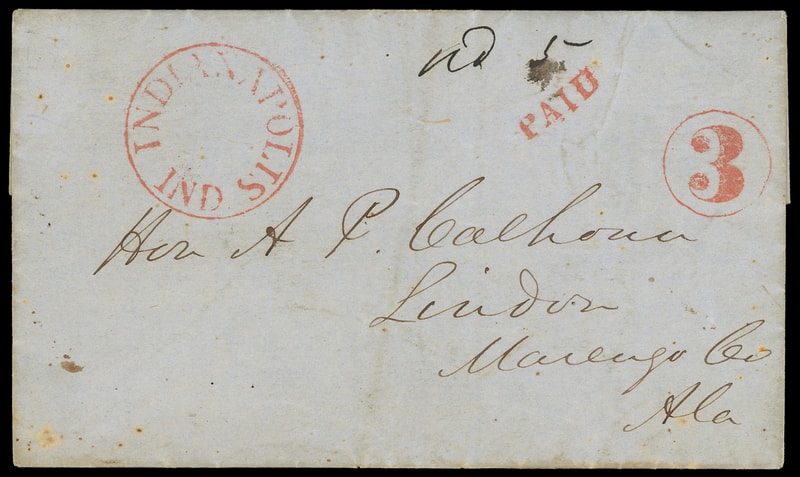 INDIANAPOLIS
IND
5
PAID
3
Hon A P. Calhoun
Lindon
Marengo Co
Ala